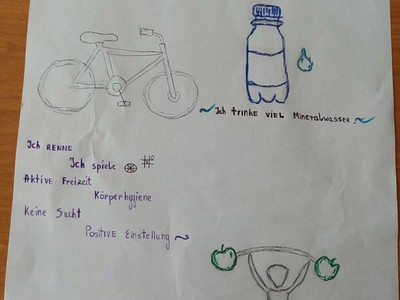 ~Ich trinke viel Mineralwasser~
Ich RENNE
Ich spiele
Aktive Freizeit
Körperhygiene
Keine Sucht
Positive Einstellung~